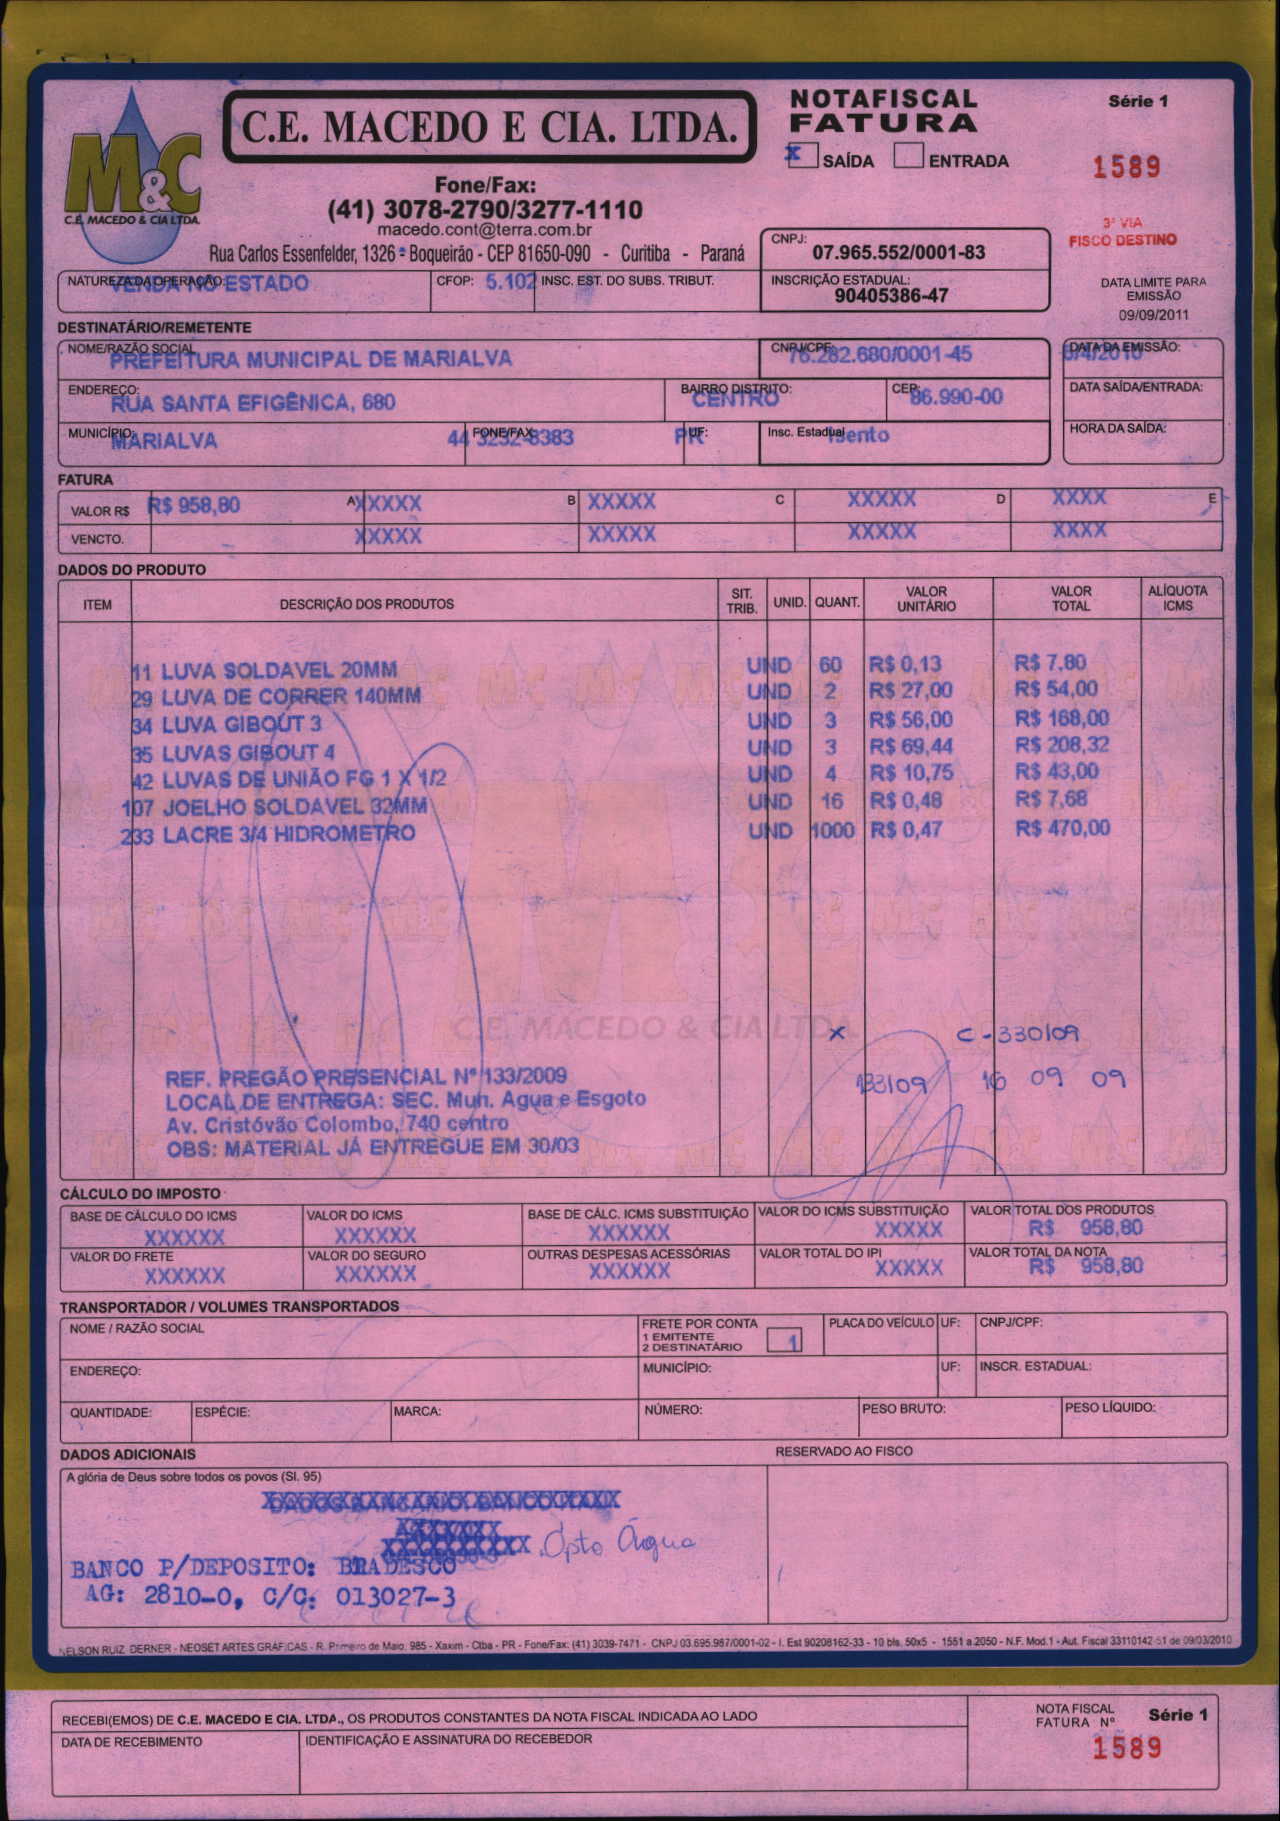 M&C
C.E. MACEDO & CIA LTDA.
C.E. MACEDO E CIA. LTDA.
Fone/Fax:
(41) 3078-2790/3277-1110
macedo.cont@terra.com.br
Rua Carlos Essenfelder, 1326 - Boqueirão - CEP 81650-090 - Curitiba - Paraná
NOTAFISCAL
FATURA
X SAÍDA ENTRADA
Série 1
1589
3ª VIA
FISCO DESTINO
CNPJ:
07.965.552/0001-83
INSCRIÇÃO ESTADUAL:
90405386-47
DATA LIMITE PARA
EMISSÃO
09/09/2011
NATUREZA DA OPERAÇÃO: VENDA NO ESTADO CFOP: 5.102 INSC. EST. DO SUBS. TRIBUT.
DESTINATÁRIO/REMETENTE
NOME/RAZÃO SOCIAL PREFEITURA MUNICIPAL DE MARIALVA CNPJ/CPF: 76.282.680/0001-45 DATA DA EMISSÃO:
ENDEREÇO: RUA SANTA EFIGÊNICA, 680 BAIRRO DISTRITO: CENTRO CEP: 86.990-00 DATA SAÍDA/ENTRADA:
MUNICÍPIO: MARIALVA FONE/FAX 44 3232-8383 UF: PR Insc. Estadual Isento HORA DA SAÍDA:
FATURA
VALOR R$ R$ 958,80 A XXXXX B XXXXX C XXXXX D XXXX E
VENCTO. XXXXX XXXXX XXXXX XXXX
DADOS DO PRODUTO
ITEM DESCRIÇÃO DOS PRODUTOS SIT. TRIB. UNID. QUANT. VALOR UNITÁRIO VALOR TOTAL ALÍQUOTA ICMS
11 LUVA SOLDAVEL 20MM UND 60 R$ 0,13 R$ 7,80
29 LUVA DE CORRER 140MM UND 2 R$ 27,00 R$ 54,00
34 LUVA GIBOUT 3 UND 3 R$ 56,00 R$ 168,00
35 LUVAS GIBOUT 4 UND 3 R$ 69,44 R$ 208,32
42 LUVAS DE UNIÃO FG 1 X 1/2 UND 4 R$ 10,75 R$ 43,00
107 JOELHO SOLDAVEL 32MM UND 16 R$ 0,48 R$ 7,68
233 LACRE 3/4 HIDROMETRO UND 1000 R$ 0,47 R$ 470,00
C.E. MACEDO & CIA LTDA.
X C-330/09
133/09 16 09 09
REF. PREGÃO PRESENCIAL Nº 133/2009
LOCAL DE ENTREGA: SEC. Mun. Agua e Esgoto
Av. Cristóvão Colombo, 740 centro
OBS: MATERIAL JÁ ENTREGUE EM 30/03
CÁLCULO DO IMPOSTO
BASE DE CÁLCULO DO ICMS VALOR DO ICMS BASE DE CÁLC. ICMS SUBSTITUIÇÃO VALOR DO ICMS SUBSTITUIÇÃO VALOR TOTAL DOS PRODUTOS
XXXXXX XXXXXX XXXXXX XXXXX R$ 958,80
VALOR DO FRETE VALOR DO SEGURO OUTRAS DESPESAS ACESSÓRIAS VALOR TOTAL DO IPI VALOR TOTAL DA NOTA
XXXXXX XXXXXX XXXXXX XXXXX R$ 958,80
TRANSPORTADOR / VOLUMES TRANSPORTADOS
NOME / RAZÃO SOCIAL FRETE POR CONTA 1 EMITENTE 2 DESTINATÁRIO 1 PLACA DO VEÍCULO UF: CNPJ/CPF:
ENDEREÇO: MUNICÍPIO: UF: INSCR. ESTADUAL:
QUANTIDADE: ESPÉCIE: MARCA: NÚMERO: PESO BRUTO: PESO LÍQUIDO:
DADOS ADICIONAIS RESERVADO AO FISCO
A glória de Deus sobre todos os povos (Sl. 95)
Dpto Água
BANCO P/DEPOSITO: BRADESCO
AG: 2810-0, C/C: 013027-3
NELSON RUIZ DERNER - NEOSET ARTES GRÁFICAS - R. Primeiro de Maio, 985 - Xaxim - Ctba - PR - Fone/Fax: (41) 3039-7471 - CNPJ 03.695.987/0001-02 - I. Est 90208162-33 - 10 bls. 50x5 - 1551 a 2050 - N.F. Mod.1 - Aut. Fiscal 33110142-51 de 09/03/2010
RECEBI(EMOS) DE C.E. MACEDO E CIA. LTDA., OS PRODUTOS CONSTANTES DA NOTA FISCAL INDICADA AO LADO
DATA DE RECEBIMENTO IDENTIFICAÇÃO E ASSINATURA DO RECEBEDOR
NOTA FISCAL
FATURA Nº
Série 1
1589